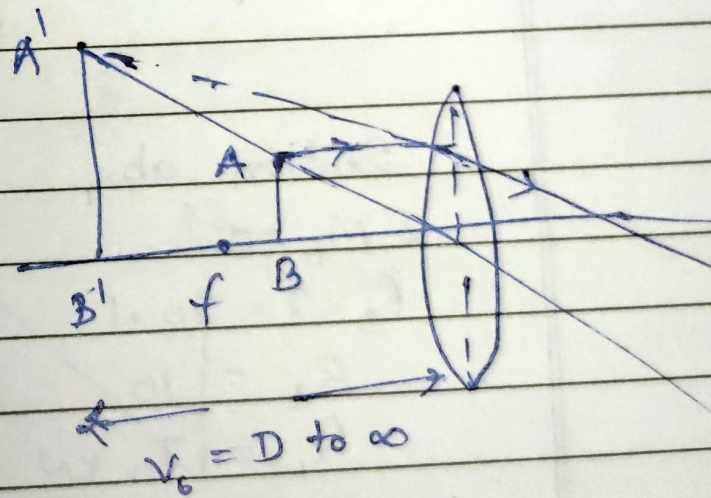 A'
A
B'
f
B
V₀ = D to ∞